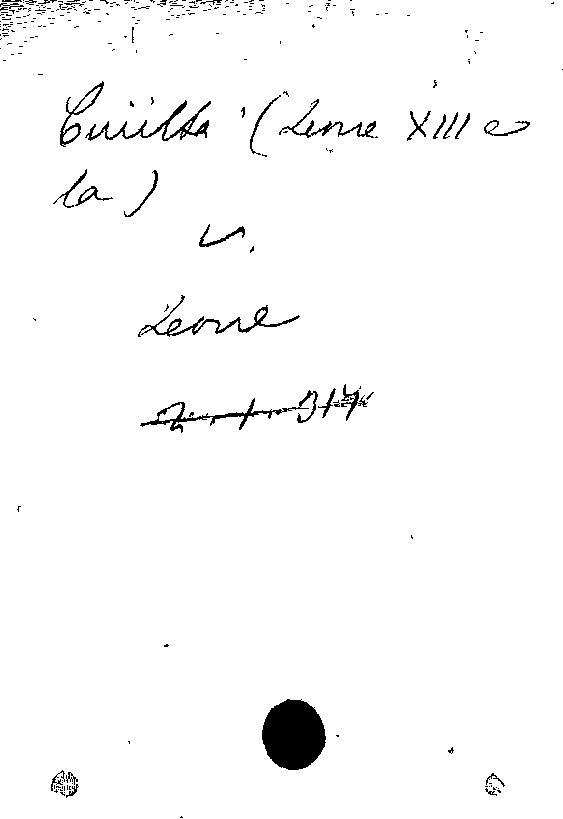 Civiltà (Leone XIII e
la)
v.
Leone
2. 1. 314